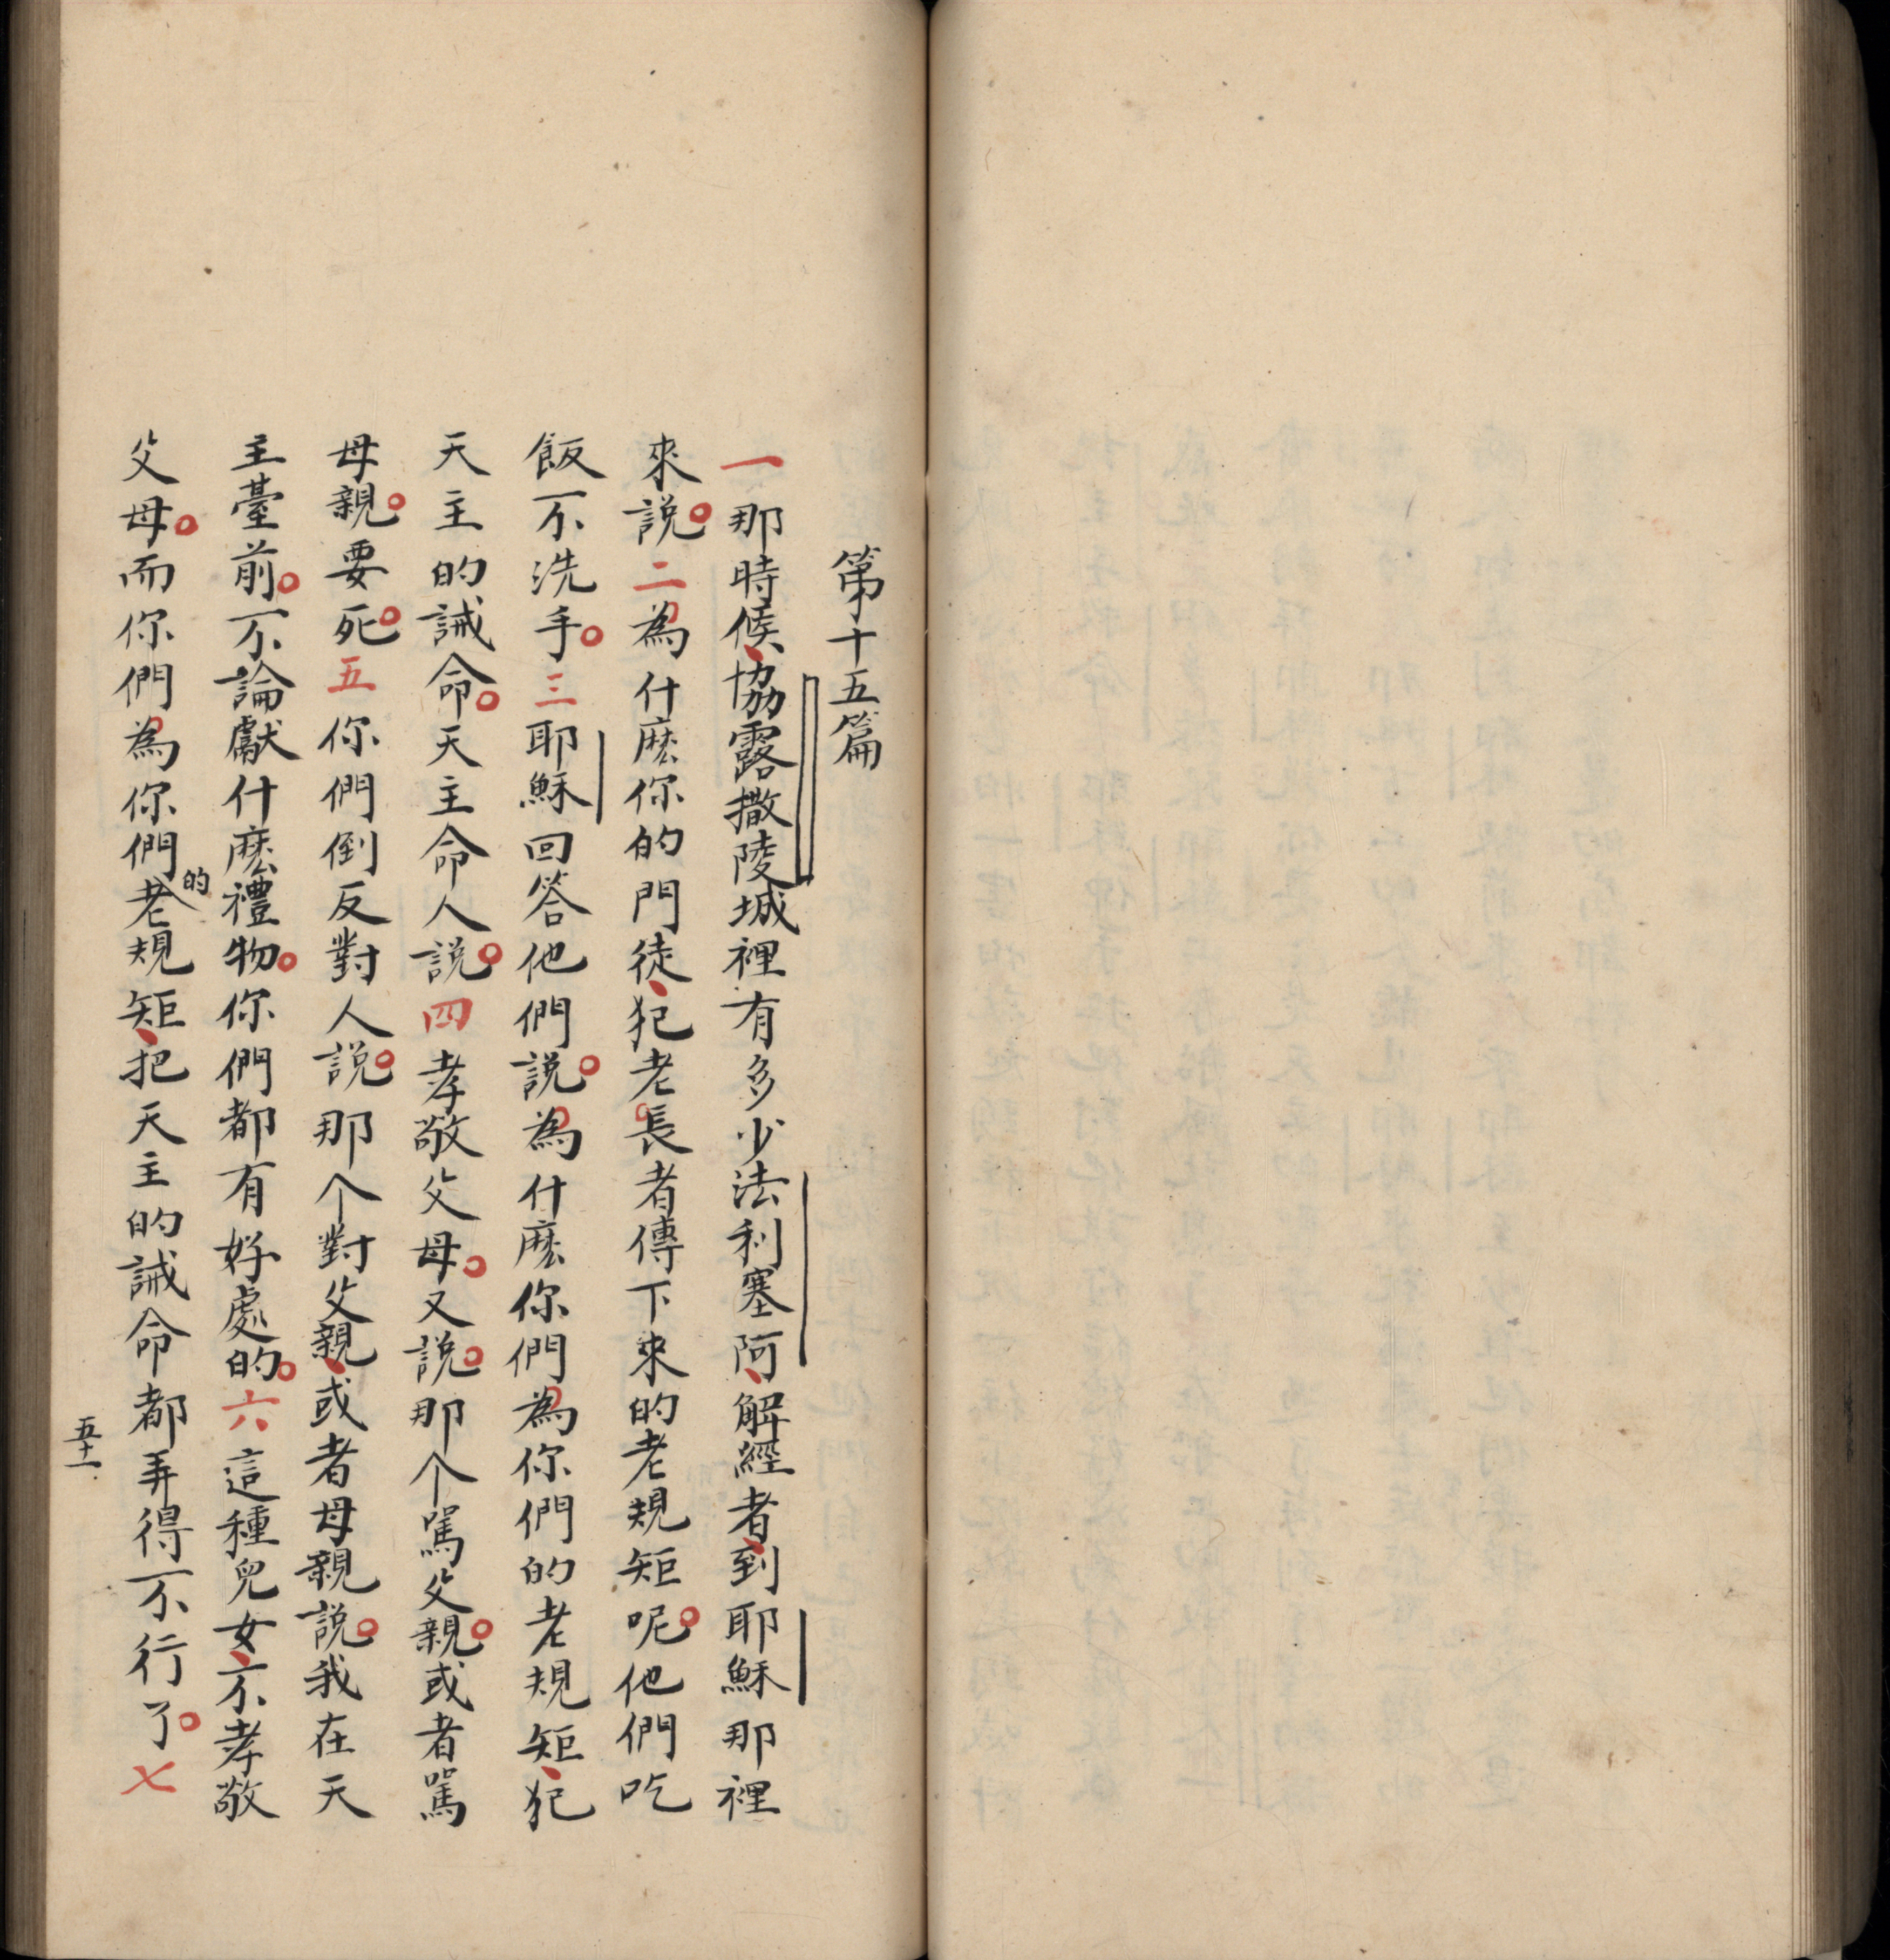 第十五篇
一那時候、協露撒陵城裡有多少法利塞阿、解經者、到耶穌那裡
來說。二為什麽你的門徒、犯老長者傳下來的老規矩呢。他們吃
飯不洗手。三耶穌回答他們說。為什麽你們為你們的老規矩、犯
天主的誡命。天主命人說。四孝敬父母。又說。那个罵父親。或者罵
母親。要死。五你們倒反對人說。那个對父親、或者母親說。我在天
主臺前。不論獻什麽禮物。你們都有好處的。六這種兒女、不孝敬
父母。而你們為你們的老規矩、把天主的誡命都弄得不行了。七
五十一